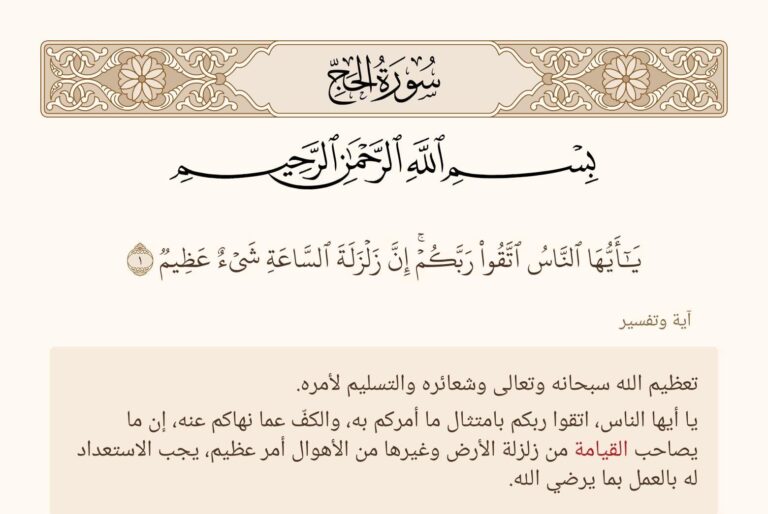 سُورَةُ الحَجِّ
بِسْمِ ٱللَّهِ ٱلرَّحْمَٰنِ ٱلرَّحِيمِ
يَٰٓأَيُّهَا ٱلنَّاسُ ٱتَّقُوا۟ رَبَّكُمْ ۚ إِنَّ زَلْزَلَةَ ٱلسَّاعَةِ شَىْءٌ عَظِيمٌ ١
آية وتفسير
تعظيم الله سبحانه وتعالى وشعائره والتسليم لأمره.
يا أيها الناس، اتقوا ربكم بامتثال ما أمركم به، والكفّ عما نهاكم عنه، إن ما
يصاحب القيامة من زلزلة الأرض وغيرها من الأهوال أمر عظيم، يجب الاستعداد
له بالعمل بما يرضي الله.